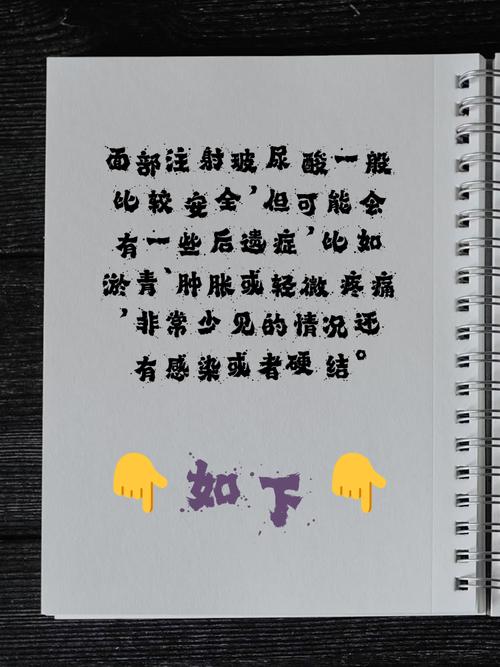 面部注射玻尿酸一般
比较安全，但可能会
有一些后遗症，比如
淤青、肿胀或轻微疼痛
，非常少见的情况还
有感染或者硬结。
👇如下👇